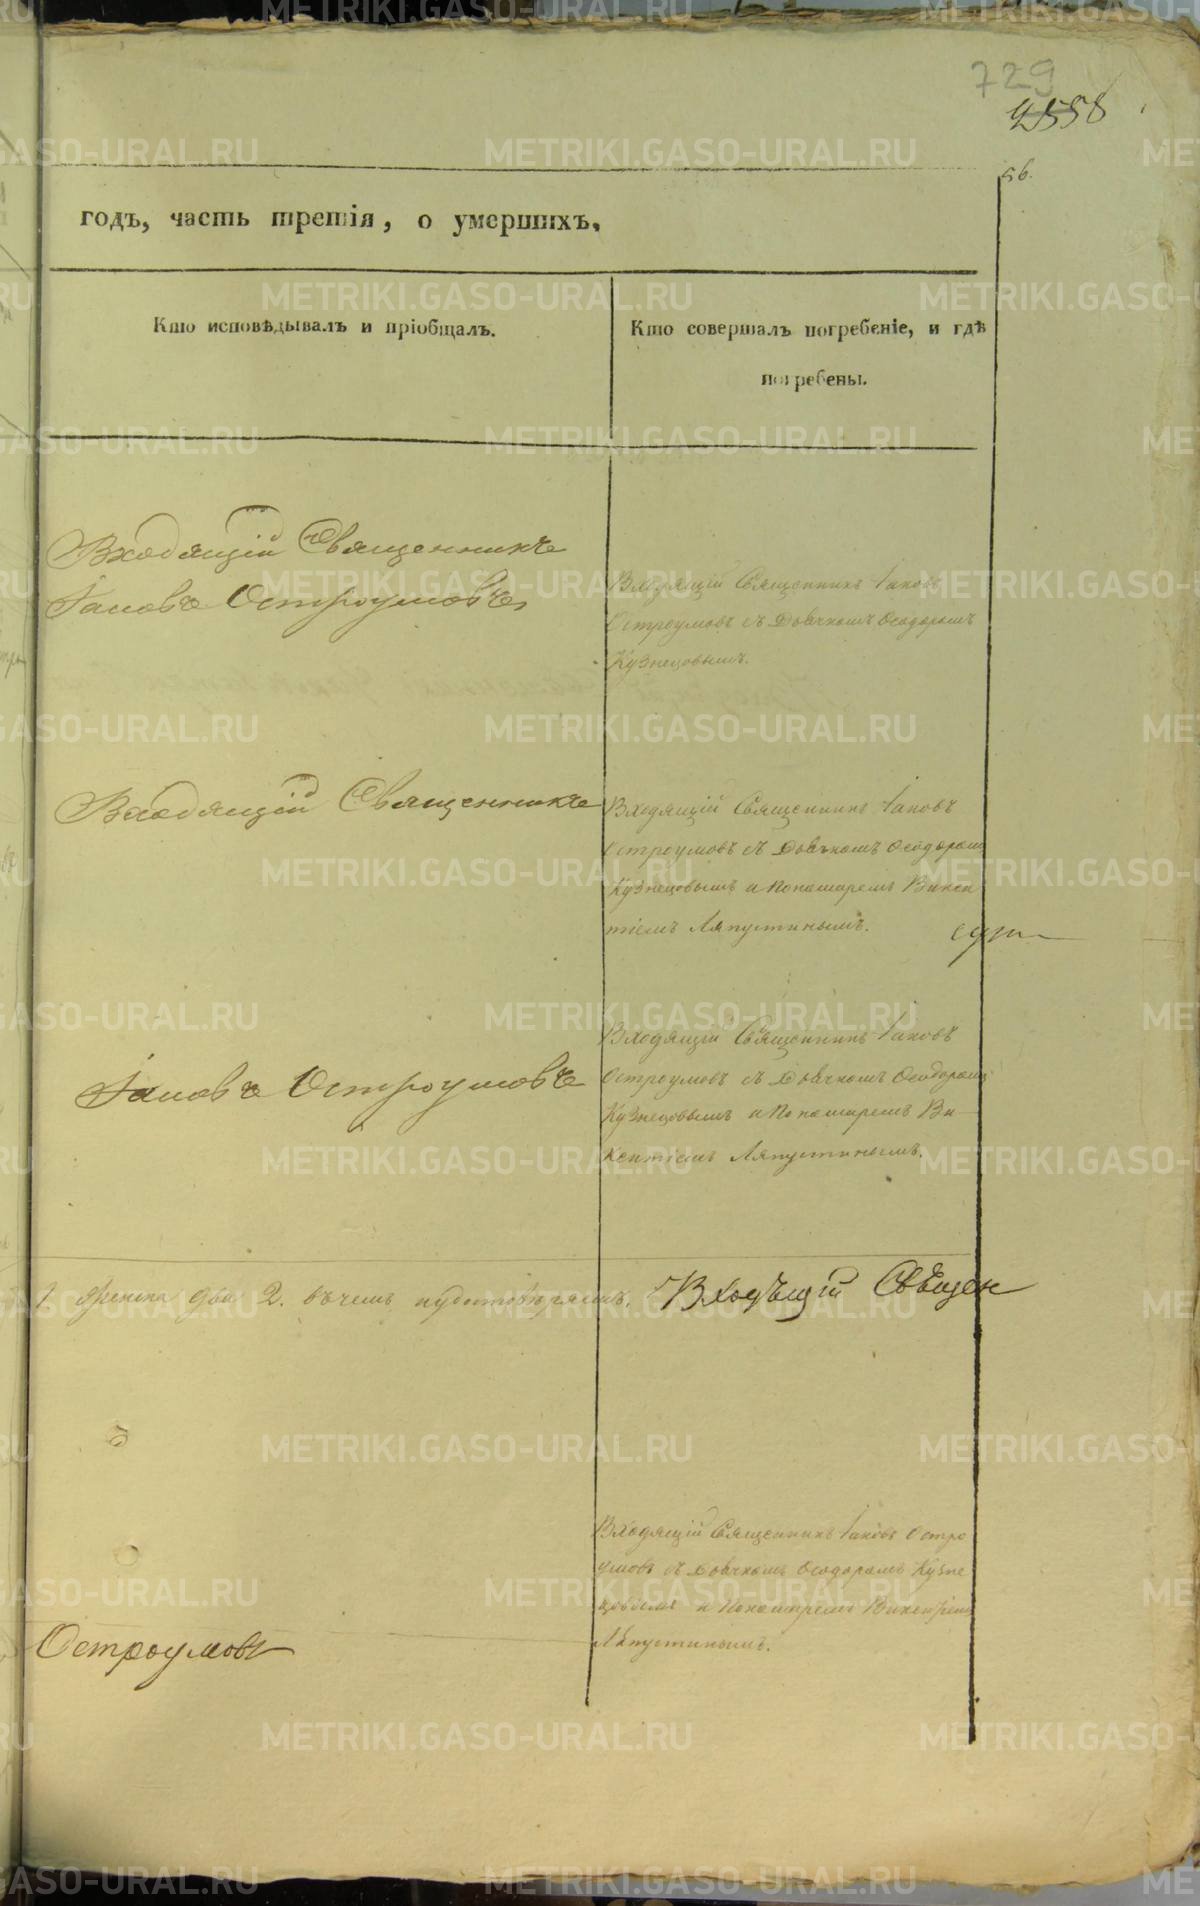 729
2558
годъ, часть третія, о умершихъ,
Кто исповѣдывалъ и пріобщалъ.
Кто совершалъ погребеніе, и гдѣ
погребены.
Входящій Священникъ
Іаковъ Остроумовъ
Входящій Священникъ Іаковъ
Остроумовъ съ Дьячкомъ Ѳеодоромъ
Кузнецовымъ.
Входящій Священникъ
Входящій Священникъ Іаковъ
Остроумовъ съ Дьячкомъ Ѳеодоромъ
Кузнецовымъ и Пономаремъ Викен
тіемъ Ляпустинымъ.
Іаковъ Остроумовъ
Входящій Священникъ Іаковъ
Остроумовъ съ Дьячкомъ Ѳеодоромъ
Кузнецовымъ и Пономаремъ Ви
кентіемъ Ляпустинымъ.
женска два 2. въ чемъ и удостовѣряемъ.
Входящій Свѣщен
Входящій Священникъ Іаковъ Остро
умовъ съ Дьячкомъ Ѳеодоромъ Кузне
цовымъ и Пономаремъ Викентіемъ
Ляпустинымъ.
Остроумовъ
METRIKI.GASO-URAL.RU